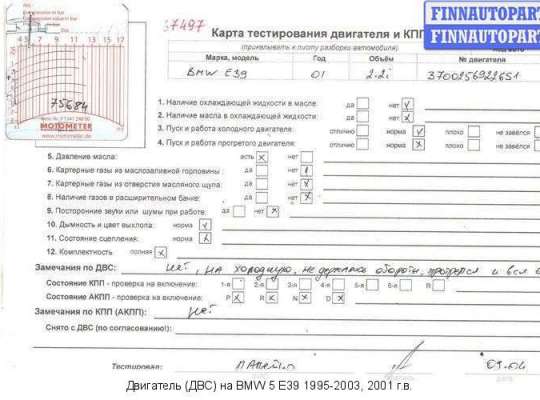 FINNAUTOPART
FINNAUTOPART
37497
Карта тестирования двигателя и КПП
(прикалывать к листу разборки автомобиля)
Марка, модель Год Объём № двигателя
BMW E39 01 2.2i
4 5 7 9 11 13 15 17
75684
MOTOMETER
www.motometer.de
1. Наличие охлаждающей жидкости в масле: да нет
2. Наличие масла в охлаждающей жидкости: да нет
3. Пуск и работа холодного двигателя: отлично норма плохо не завёлся
4. Пуск и работа прогретого двигателя: отлично норма плохо не завёлся
5. Давление масла: есть нет
6. Картерные газы из маслозаливной горловины: да нет
7. Картерные газы из отверстия масляного щупа: да нет
8. Наличие газов в расширительном бачке: да нет
9. Посторонние звуки или шумы при работе: да нет
10. Дымность и цвет выхлопа: норма
11. Состояние сцепления: норма
12. Комплектность полная
Замечания по ДВС: нет, на холодную, не держала обороты, прогрелся и все
Состояние КПП - проверка на включение: 1-я 2-я 3-я 4-я 5-я 6-я R
Состояние АКПП - проверка на включение: P R N D
Замечания по КПП (АКПП): нет
Снято с ДВС (по согласованию!):
Тестировал:
Двигатель (ДВС) на BMW 5 E39 1995-2003, 2001 г.в.